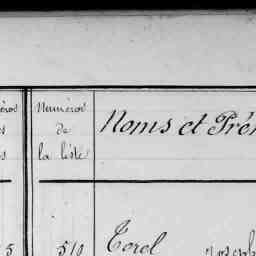 Numéros
de
la liste
Noms et Pré
5
510
Corel
Joseph